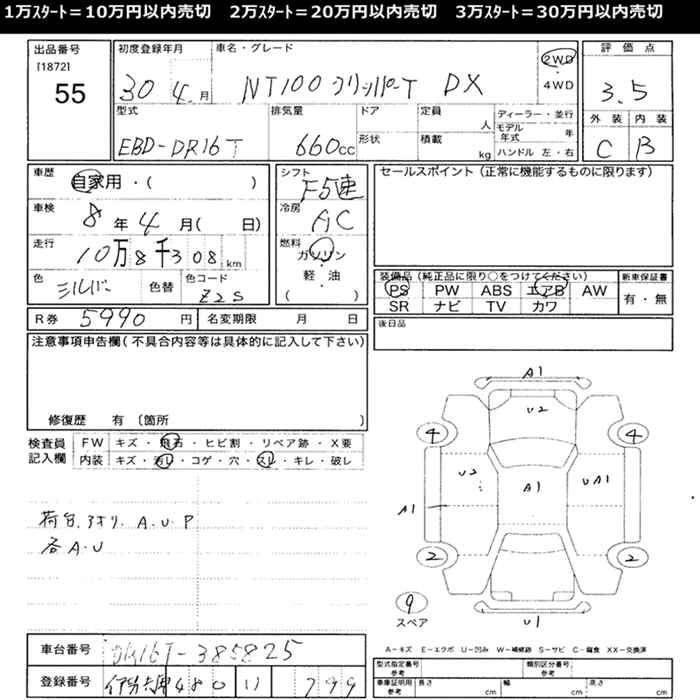 1万スタート＝10万円以内売切　2万スタート＝20万円以内売切　3万スタート＝30万円以内売切
出品番号
[1872]
55
初度登録年月
30 4 月
車名・グレード
NT100クリッパーT DX
2WD
・
4WD
評価点
3.5
外装 内装
C B
型式
EBD-DR16T
排気量
660cc
ドア
形状
定員
人
積載
kg
ディーラー・並行
モデル年式 年
ハンドル 左・右
車歴
自家用・( )
車検
8年4月( 日)
走行
10万8千308km
色
シルバー
色替
色コード
Z2S
シフト
F5速
冷房
AC
燃料
ガソリン
・
軽・油
( )
セールスポイント（正常に機能するものに限ります）
装備品（純正品に限り○をつけてください）
PS PW ABS エアB AW
SR ナビ TV カワ
新車保証書
有・無
後日品
R券 5990円
名変期限 月 日
注意事項申告欄(不具合内容等は具体的に記入して下さい)
修復歴 有〔箇所 〕
検査員
記入欄
FW キズ・飛石・ヒビ割・リペア跡・X要
内装 キズ・汚レ・コゲ・穴・スレ・キレ・破レ
荷台.アオリ.A.U.P
各A.U
A1
U2
4 4
U2 A1 UA1
A1
2 2
9
スペア
U1
A－キズ E－エクボ U－凹み W－補修跡 S－サビ C－腐食 XX－交換済
車台番号 DR16T-385825
登録番号 480 799
型式指定番号
参考
類別区分番号
参考
車庫証明用
参考
長さ cm 幅 cm 高さ cm